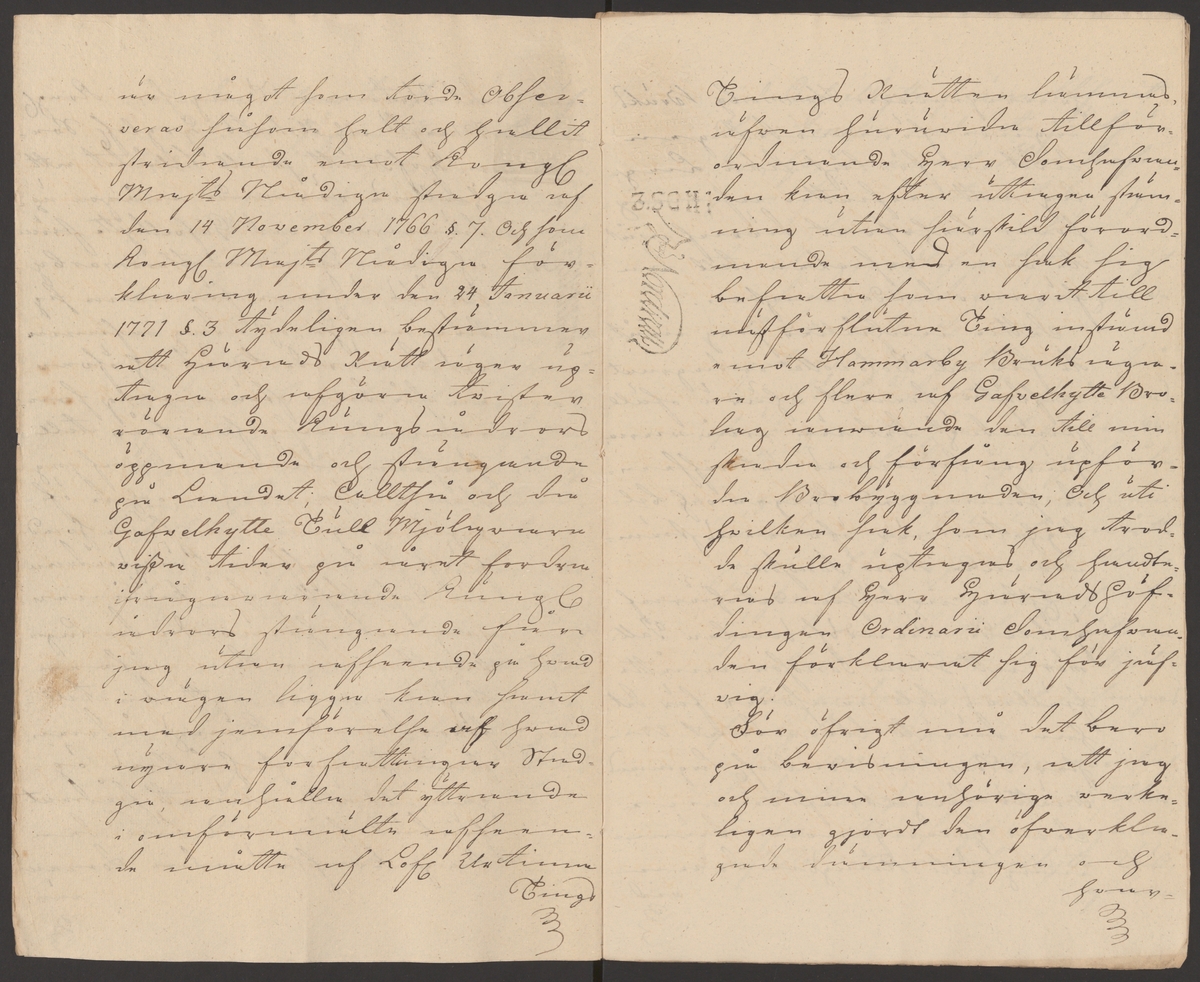 är något som torde Obser-
veras såsom helt och hållit
stridande emot Kongl
Majts Nådiga stadga af
den 14 November 1766 §. 7. Och som
Kongl Majts Nådiga för-
klaring under den 24 Januarii
1771 §. 3 tydeligen bestämmer
att Härads Rätt äger up-
taga och afgöra tvister
rörande Kungsådrors
öppnande och stängande
på Landet; Alltså och då
Gafvelhytte Tull Mjölqvarn
vißa tider på året fordra
ifrågavarande Kungs
ådrors stängande får
jag utan afseende på hvad
i vägen ligga kan samt
med jemförelse af hvad
nyare författningar Stad-
ga, anhålla det yttrande
i omförmälte afseen-
de måtte af Lofl Urtima
Tings
Tings Rätten lämnas,
äfven huruvida tillför-
ordnande Herr Domhafvan-
den kan efter uttagen stäm-
ning utan särskild förord-
nande med en sak sig
befatta som varit till
nästförflutne Ting instämd
emot Hammarby Bruksäga-
re och flere af Gafvelhytte Bro-
lag använde den till min
skada och förfång upför-
da Brobyggnaden; Och uti
hvilken sak, som jag trod-
de skulle uptagas och handte-
ras af Herr Häradshöf-
dingen Ordinarii Domhafvan-
den förklarat sig för jäf-
vig.
För öfrigt må det bero
på bevisningen, att jag
och mine anhörige verke-
ligen gjordt den öfverkla-
gade dämningen och
hvar-